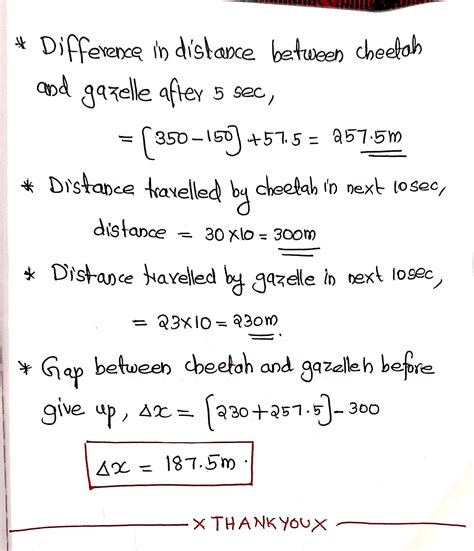 * Difference in distance between cheetah
and gazelle after 5 sec,
= [350-150]+57.5 = 257.5m
* Distance travelled by cheetah in next 10sec,
distance = 30×10 = 300m
* Distance travelled by gazelle in next 10sec,
= 23×10 = 230m.
* Gap between cheetah and gazelleh before
give up, Δx = [230+257.5]-300
Δx = 187.5m.
× THANKYOU ×